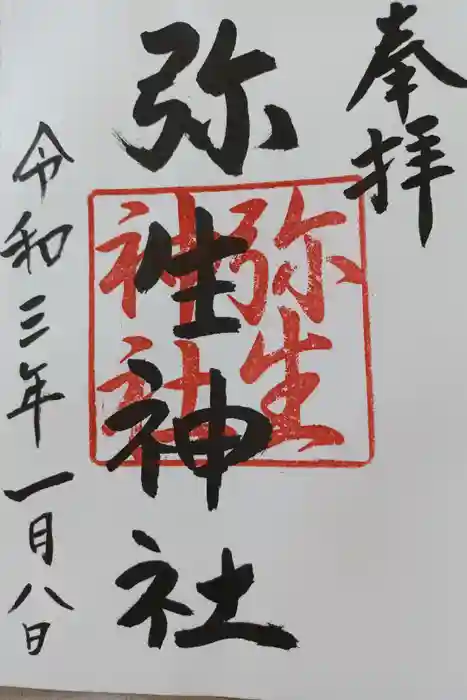 奉拝
弥生神社
弥生
神社
令和三年一月八日